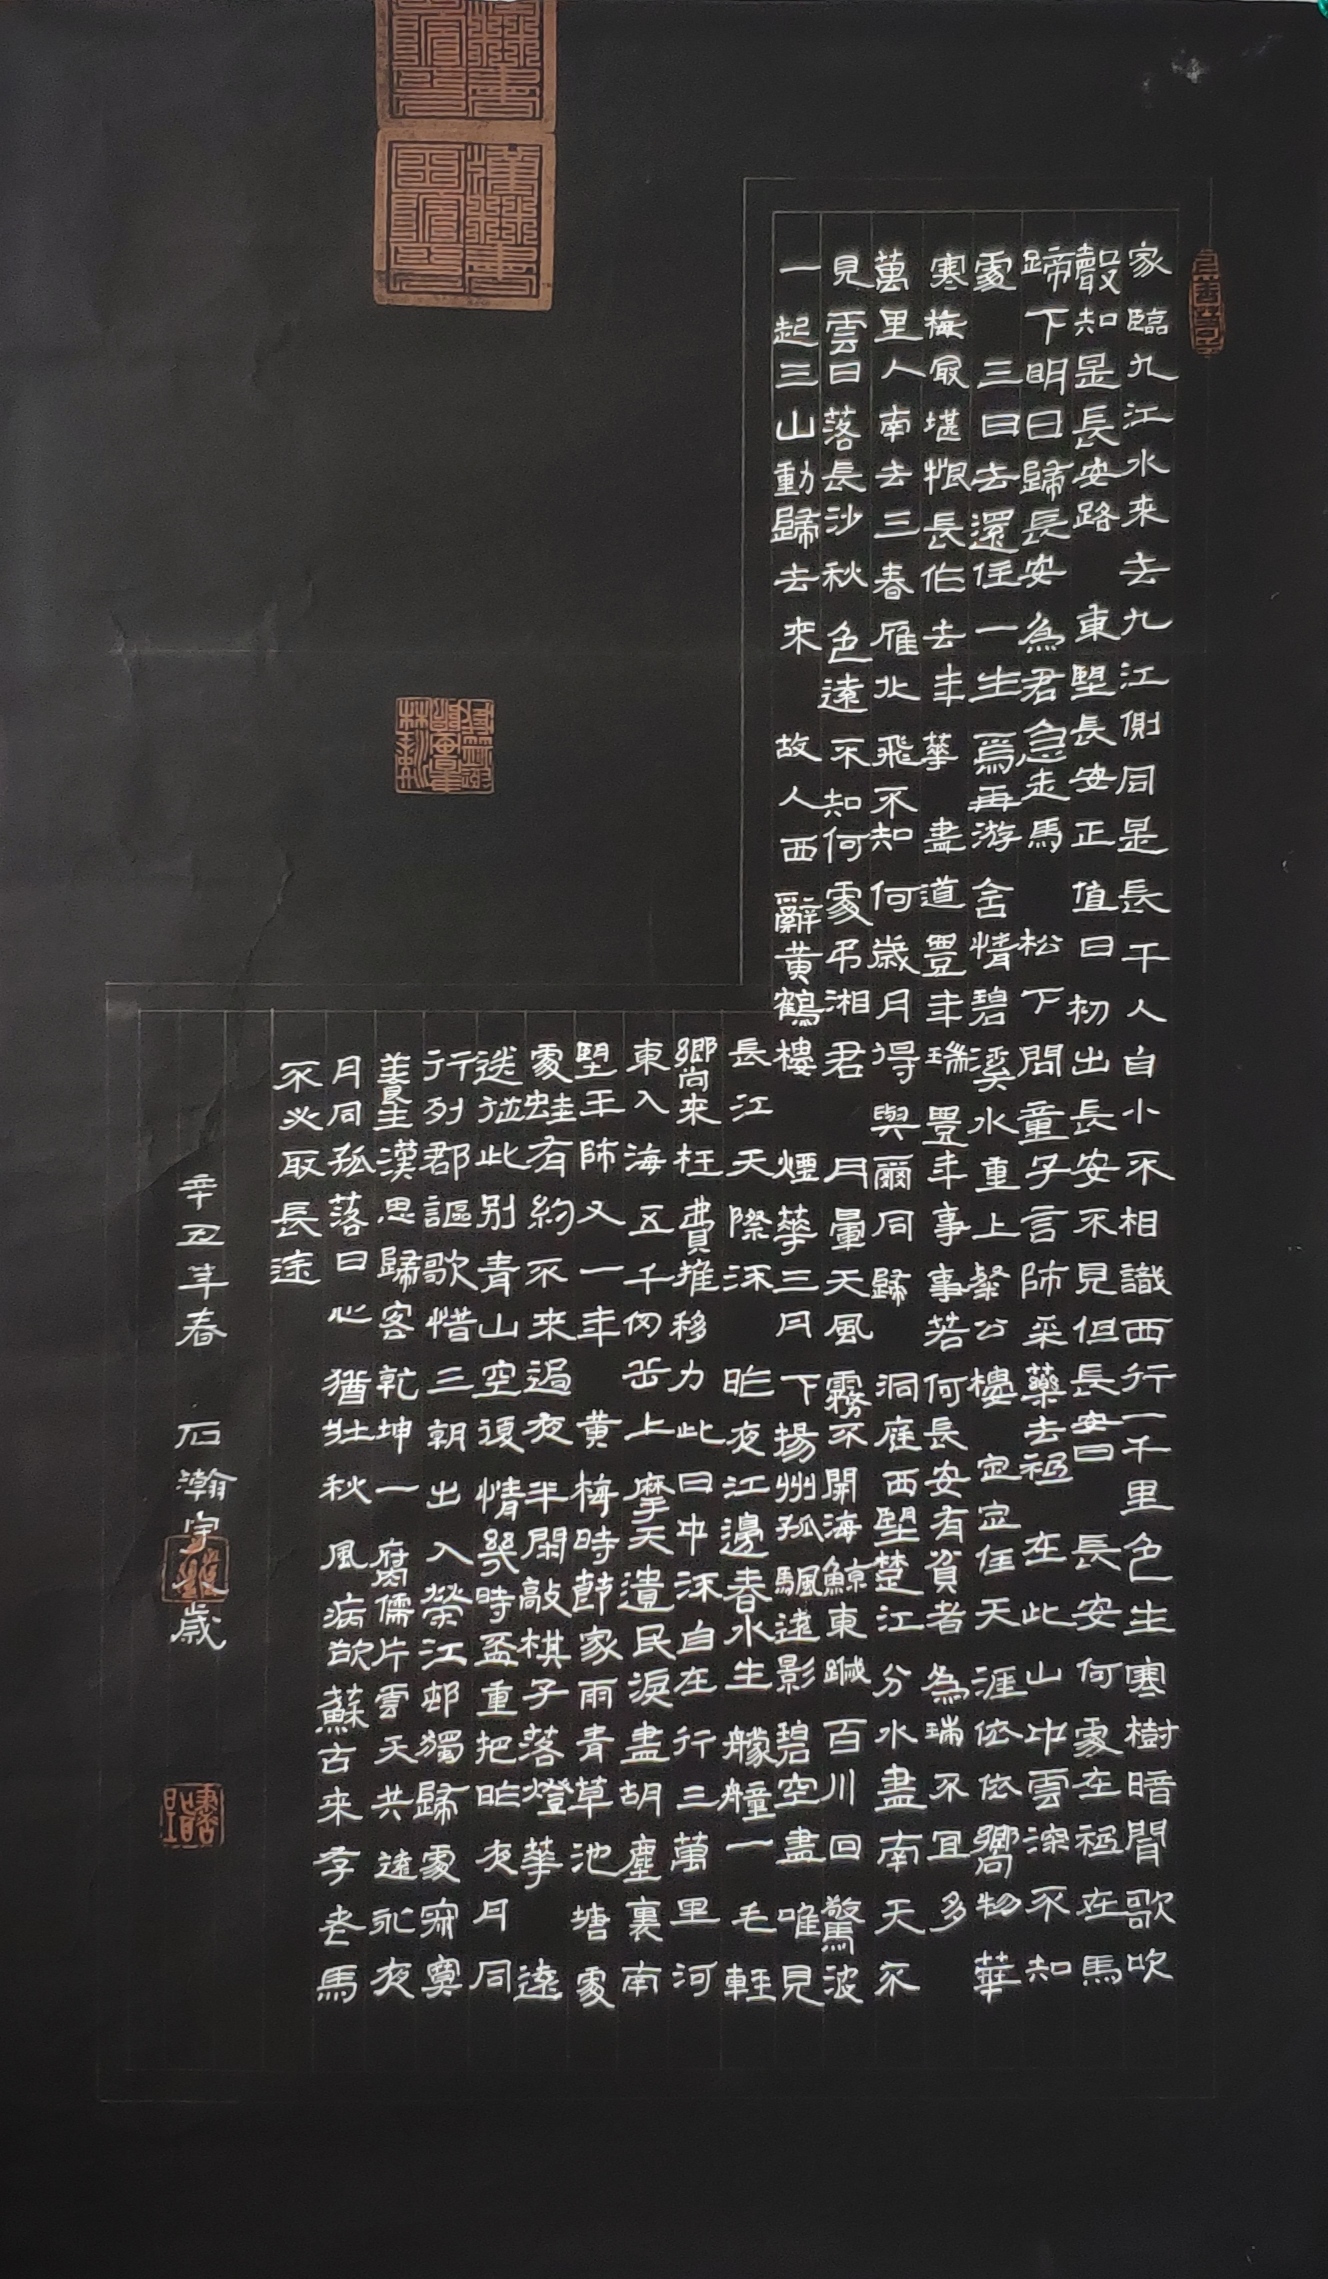 家臨九江水來去九江側同是長干人自小不相識西行一千里色生寒樹暗聞歌吹
聲知是長安路 東望長安正值日初出長安不見但長安日 長安何處在祗在馬
蹄下明日歸長安為君急走馬 松下問童子言師采藥去祗在此山中雲深不知
處 三日去還住一生焉再游含情碧溪水重上粲公樓 定定住天涯依依嚮物華
寒梅最堪恨長作去年華 盡道豐年瑞豐年事事若何長安有貧者為瑞不宜多
萬里人南去三春雁北飛不知何歲月得與爾同歸 洞庭西望楚江分水盡南天不
見雲日落長沙秋色遠不知何處弔湘君 月暈天風霧不開海鯨東蹙百川回驚波
一起三山動歸去來 故人西辭黃鶴樓 煙華三月下揚州孤颿遠影碧空盡唯見
長江天際流 昨夜江邊春水生 艨艟一毛輕
嚮來枉費推移力此日中流自在行三萬里河
東入海五千仞岳上摩天遺民淚盡胡塵裏南
望王師又一年 黃梅時節家雨青草池塘處
處蛙有約不來過夜半閑敲棋子落燈華 遠
送從此別青山空復情幾時盃重把昨夜月同
行列郡謳歌惜三朝出入榮江邨獨歸處寂寞
養生漢思歸客乾坤一腐儒片雲天共遠永夜
月同孤落日心猶壯秋風病欲蘇古來存老馬
不必取長途
辛丑年春 石瀚宇 歲